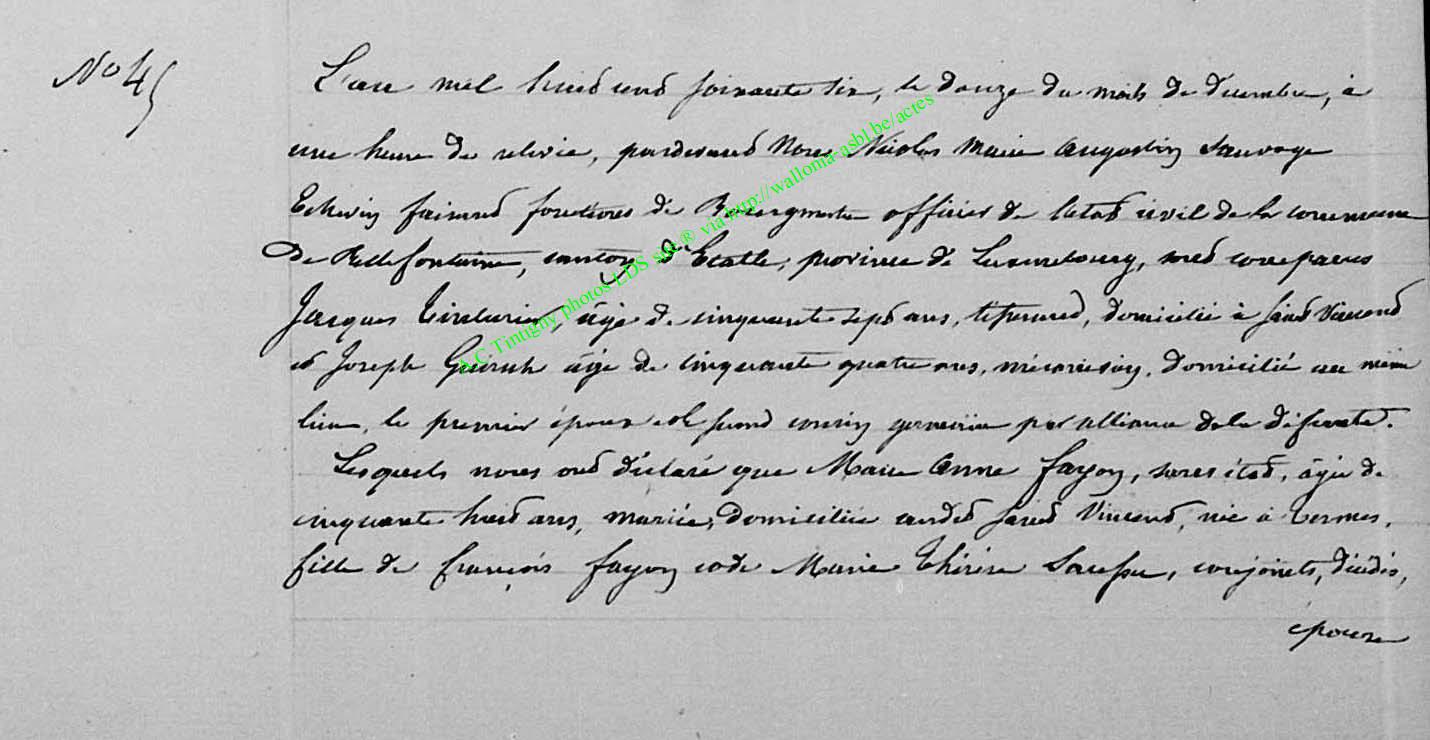 No 45
L'an mil huit cent soixante six, le douze du mois de décembre, à
une heure de relevée, pardevant Nous Nicolas Marie Augustin Sauvage
Echevin faisant fonctions de Bourgmestre officier de l'état civil de la commune
de Bellefontaine, canton d'Etalle, province de Luxembourg, sont comparus
Jacques âgé de cinquante sept ans, domicilié à Saint Vincent
et Joseph âgé de cinquante quatre ans, domicilié au même
lieu, le premier époux et le second cousin germain par alliance de la défunte.
Lesquels nous ont déclaré que Marie Anne Fayon, sans état, âgée de
cinquante huit ans, mariée, domiciliée audit Saint Vincent, née à Termes,
fille de François Fayon et de Marie Thérèse conjoints, décédés,
épouse
A.C.Tintigny photos LDS sur ® via http://walloma-asbl.be/actes